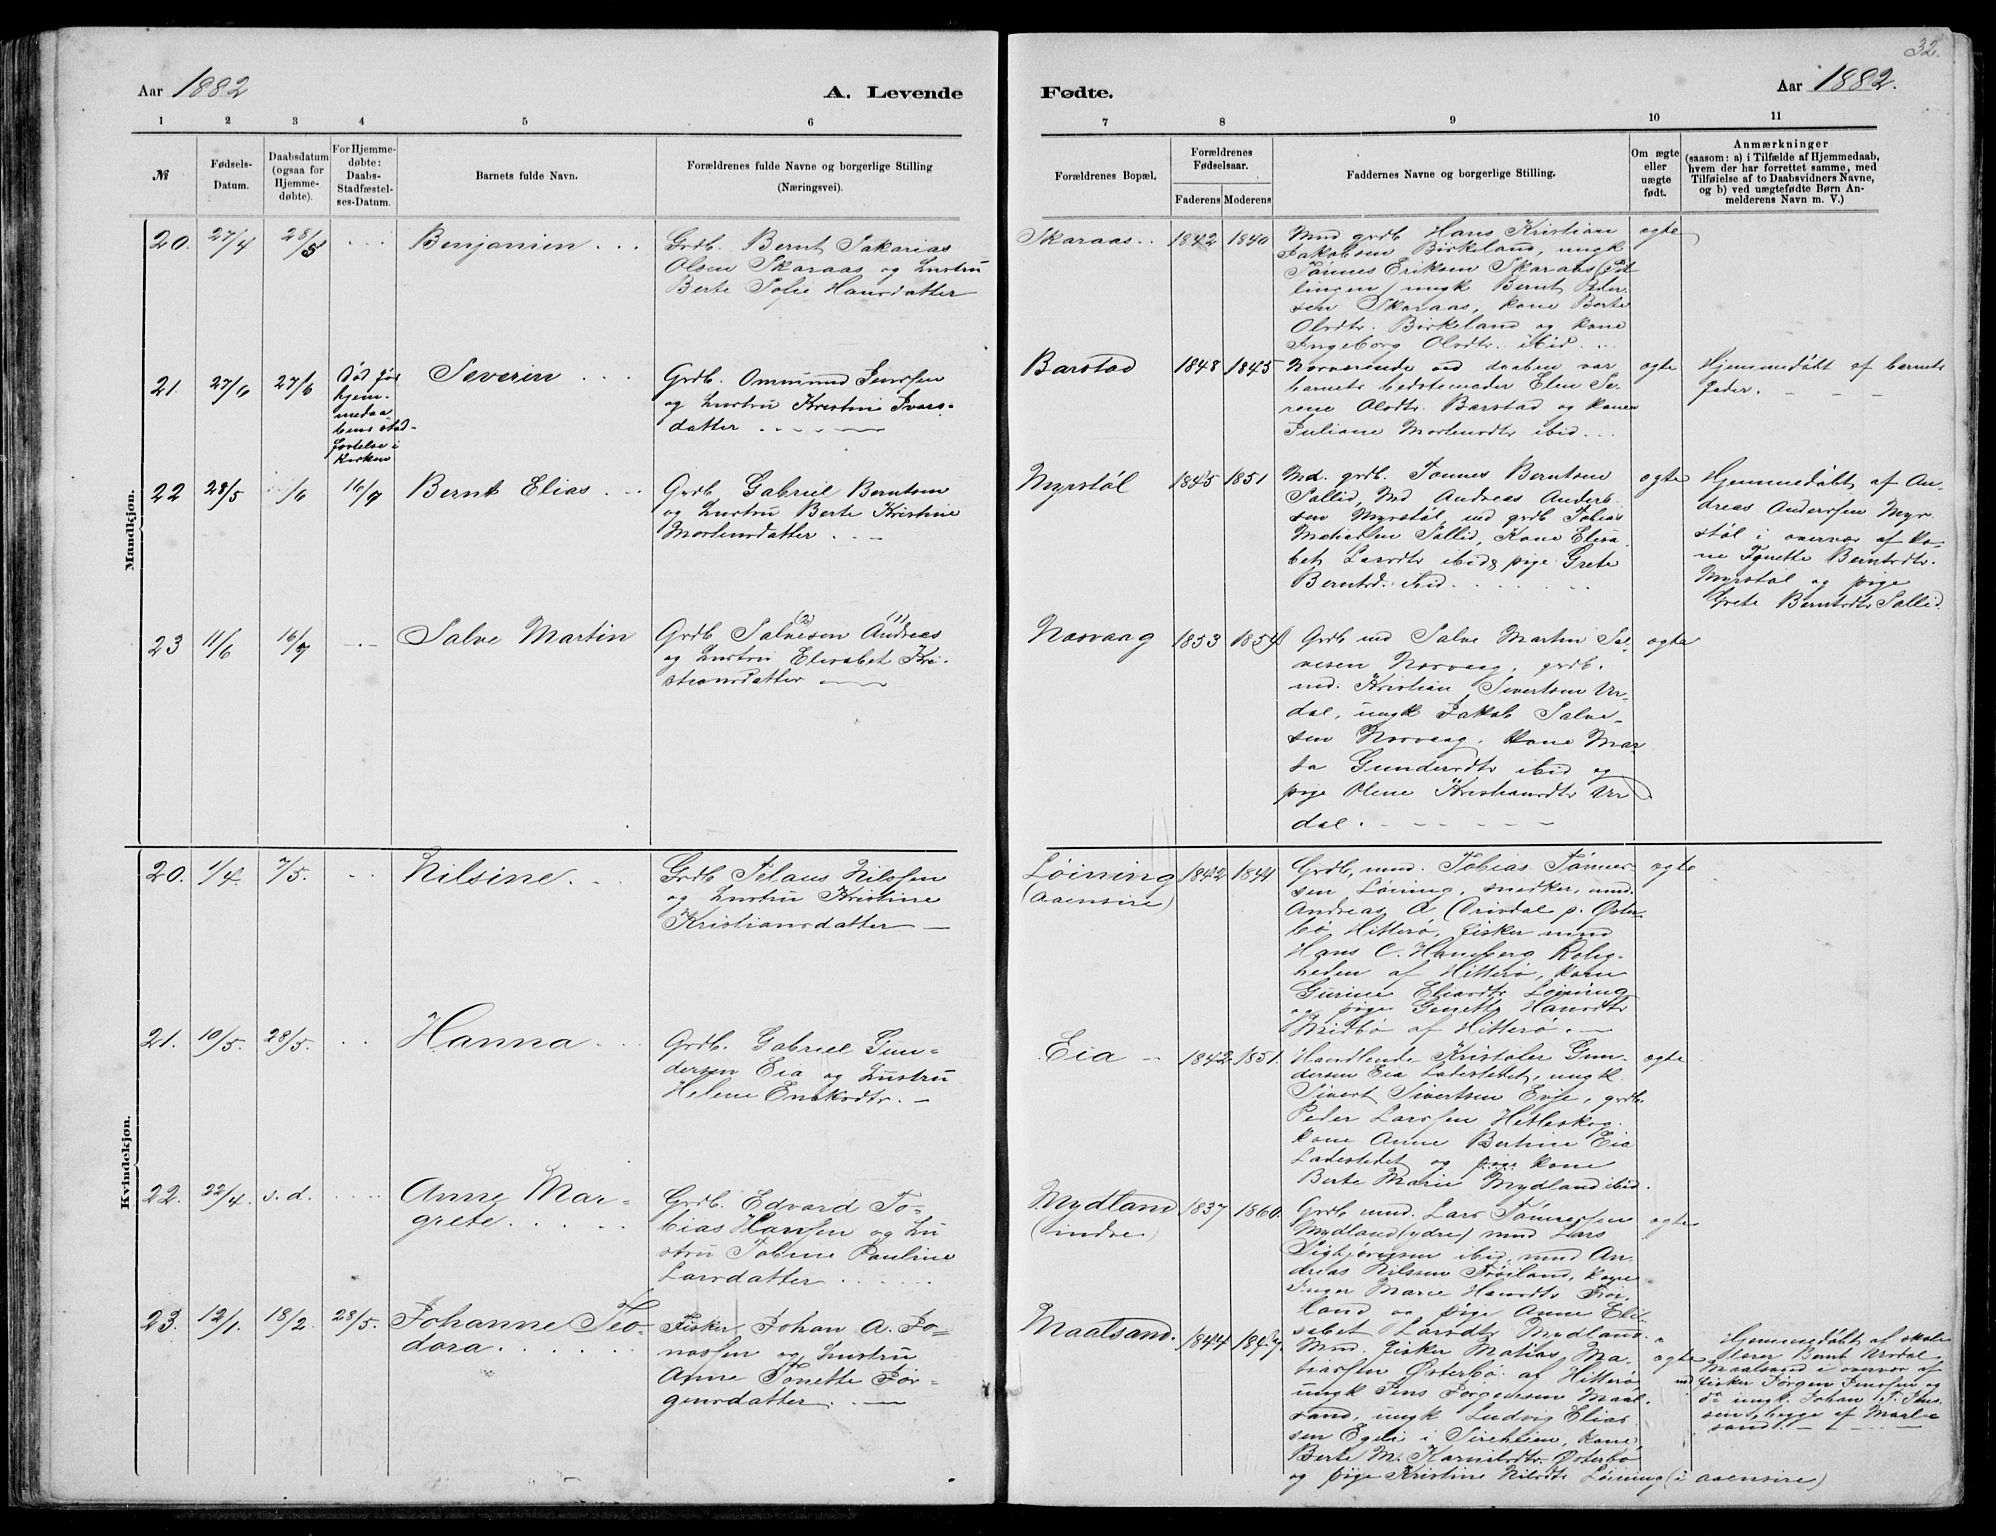 32.
Aar 1882
A. Levende
Fødte.
Aar 1882.
1 2 3 4 5 6
7 8 9 10 11
№
Fødsels-
Datum.
Daabsdatum
(ogsaa for
Hjemme-
døbte).
For Hjemme-
døbte:
Daabs-
Stadfæstel-
ses-Datum.
Barnets fulde Navn.
Forældrenes fulde Navne og borgerlige Stilling
(Næringsvei).
Forældrenes Bopæl.
Forældrenes
Fødselsaar.
Faderens Moderens
Faddernes Navne og borgerlige Stilling.
Om ægte
eller
uægte
født.
Anmærkninger
(saasom: a) i Tilfælde af Hjemmedaab,
hvem der har forrettet samme, med
Tilføielse af to Daabsvidners Navne,
og b) ved uægtefødte Børn An-
melderens Navn m. V.)
Mandkjøn.
20. 27/4 28/5 Benjamien
Grdb. Bernt Sakarias
Olsen Skaraas og hustru
Berte Sofie Hansdatter
Skaraas 1842 1840
Md grdb Hans Kristian
Jakobsen Birkeland, ungk
Tønnes Eriksen Skaraas (Fit-
lingen) ungk Bernt Peder-
sen Skaraas, kone Berte
Olsdtr. Birkeland og kone
Ingeborg Olsdtr. ibid
ægte
21. 27/6 27/6
Død før
hjem-
medaa
bens stad-
festelse i
kirken
Severin
Grdb. Ommund Jenssen
og hustru Kristine Ivars-
datter
Barstad 1848 1845
Nærværende ved daaben var
barnets bedstemoder Elen Se-
rene Olsdtr. Barstad og konen
Juliane Mortensdtr ibid
ægte
Hjemmedøbt af barnets
fader.
22 28/5 /6 16/7 Bernt Elias
Grdb Gabriel Berntsen
og hustru Berte Kristine
Mortensdatter
Myrstøl 1845 1851
Md. grdb. Tønnes Berntsen
Sallid, Md Andreas Anders-
sen Myrstøl, md grdb Tobias
Matiassen Sallid, Kone Elisa-
bet Larsdtr ibid & pige Grete
Berntsd. ibid
ægte
Hjemmedøbt af An-
dreas Anderssen Myr-
støl i overvær af ko-
ne Tonette Berntsdtr.
Myrstøl og pige
Grete Berntsdtr Sallid.
23 11/6 16/7 Salve Martin
Grdb Salvesen (2) Andreas (1)
og hustru Elisabet Kri-
stiansdatter
Nesvaag 1853 1854
Grdb md Salve Martin Sal-
vesen Nesvaag, grdb.
md. Kristian Sivertsen Ur-
dal, ungk Jakob Salve-
sen Nesvaag. Kone Mar-
ta Gundersdtr ibid og
pige Olene Kristiansdtr Ur
dal.
ægte
Kvindekjøn.
20. 1/4. 7/5. Nilsine
Grdb Silaus Nilssen
og hustru Kristine
Kristiansdatter
Løining
(Aaensire)
1842 1844
Grdb. md. Tobias Tønnes-
sen Løining, snedker, md.
Andreas A. p. Øster-
bø Hitterø, fisker md
Hans C. Hamberg Rolig-
heden af Hitterø, kone
Gurine Eliasdtr Løining
og pige Hansdtr
Midbø af Hitterø.
ægte
21. 10/5. 28/5. Hanna
Grdb. Gabriel Gun-
dersen Eia og hustru
Helene Enoksdtr.
Eia 1842. 1851.
Handlende Kristofer Gun-
dersen Eia Ladestedet, ungk
Sivert Sivertsen Evje, grdb.
Peder Larssen Hetleskog.
kone Anne Bertine Eia
Ladestedet og pige kone
Berte Marie Mydland ibid.
ægte
22. 22/4. s. d. Anne Mar-
grete
Grdb. Edvard To-
bias Hansen og hu
stru Tobine Pauline
Larsdatter
Mydland
(indre)
1837 1860.
Grdb md. Lars Tønnessen
Mydland (ydre) md Lars
Sigbjørnsen ibid, md An-
dreas Nilssen Frøiland, kone
Inger Marie Hansdtr Frøi-
land og pige Anne Eli-
sabet Larsdtr Mydland.
ægte
23. 12/1. 18/2. 28/5. Johanne Teo-
dora.
Fisker Johan A. Jo-
nassen og hustru
Anne Tonette Jør-
gensdatter.
Maalsand. 1844 1849.
Md. fisker Matias Ma-
tiassen Østerbø af Hitterø,
ungk Jens Jørgensen Maal-
sand, ungk Ludvig Elias
sen Egeli i Sireheien, kone,
Berte M. Karnilsdtr. Østerbø
og pige Kristine Nilsdtr Løining (i Aaensire)
ægte
Hjemmedøbt af skole-
lærer Bernt Ursdal
Maalsand i overvær af
md fisker Jørgen Jenssen og
do ungk. Johan T. Jen-
sen, begge af Maal-
sand.